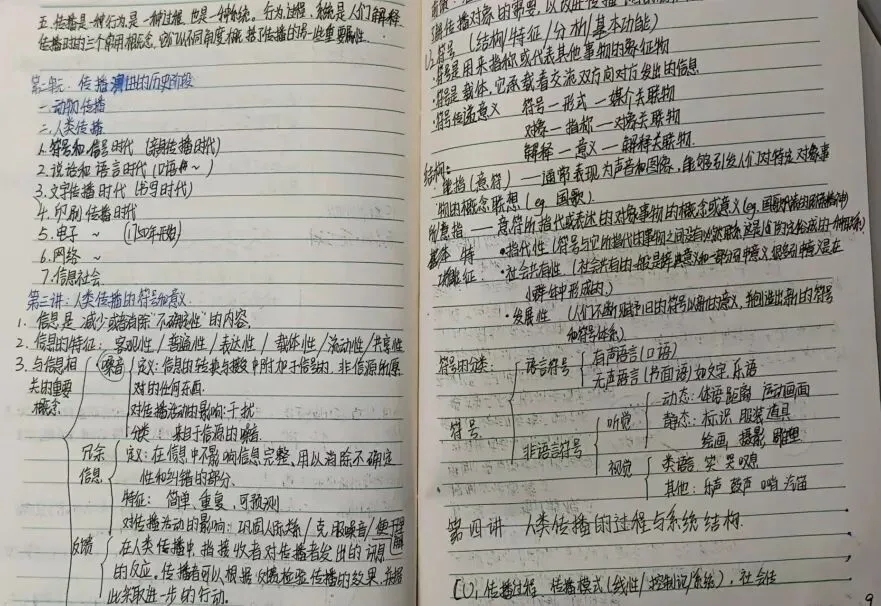 五.传播是一种行为是一种过程,也是一种系统。行为过程,系统是人们解释
传播时的三个常用概念,它们从不同角度概括了传播的另一些重要属性.
第二章:传播演进的历史阶段
一.动物传播
二.人类传播
1.符号和信号时代(亲身传播时代)
2.说话和语言时代(口语~)
3.文字传播时代(书写时代)
4.印刷传播时代
5.电子 ~
6.网络 ~
7.信息社会
第三讲:人类传播的符号和意义
1.信息是"减少或者消除"不确定性"的内容.
2.信息的特征:客观性/普遍性/表达性/载体性/流动性/共享性
3.与信息相关的重要概念
噪音 定义:信息的转换与搬文中附加于信号的,非信源所原
对的任何东西.
对传播活动的影响:干扰
分类:来自于信源的噪音.
冗余信息 定义:在信息中不影响信息完整、用以消除不确定
性和纠错的部分、
特征: 简单、重复、可预测
对传播活动的影响:巩固人际关系/克服噪音/便于
反馈 在人类传播中,指接收者对传播者发出的讯息
的反应。传播者可以根据反馈检验传播的效果,并据
此采取进一步的行动。
解传播对象的需要,以改进传播
(2.符号 (结构/特征/分析/基本功能)
·符号是用来指称或代表其他事物的象征物
·符号是载体,它承载着交流双方向对方发出的信息
·符号传递意义 符号—形式—媒介关联物
对象—指称—对象关联物
解释—意义—解释关联物.
结构:
·能指(意符)——通常表现为声音和图像,能够引发人们对特定对象事
物的概念联想(eg 国歌)
所指——意符所指代或表述的对象事物的概念或意义(eg.
基本特征 ·指代性(符号与它所指代的事物之间没有必然联系
·社会共有性(社会共有的一般是辞典意义和一部分引申意义,很多引申意义是在
小群体中形成的,)
·发展性 (人们不断赋予旧的符号以新的意义,并创造出新的符号
和符号体系)
符号的分类: 语言符号 有声语言(口语)
无声语言(书面语)如文字、乐语
符号 非语言符号 听觉 动态:体语 距离 运动画面
静态:标识 服装 道具
绘画 摄影 雕塑
视觉 类语言 笑 哭 叹息
其他:乐声 鼓声 口哨 汽笛
第四讲 人类传播的过程与系统结构.
[(1).传播过程 传播模式(线性/控制论/系统),社会传
9